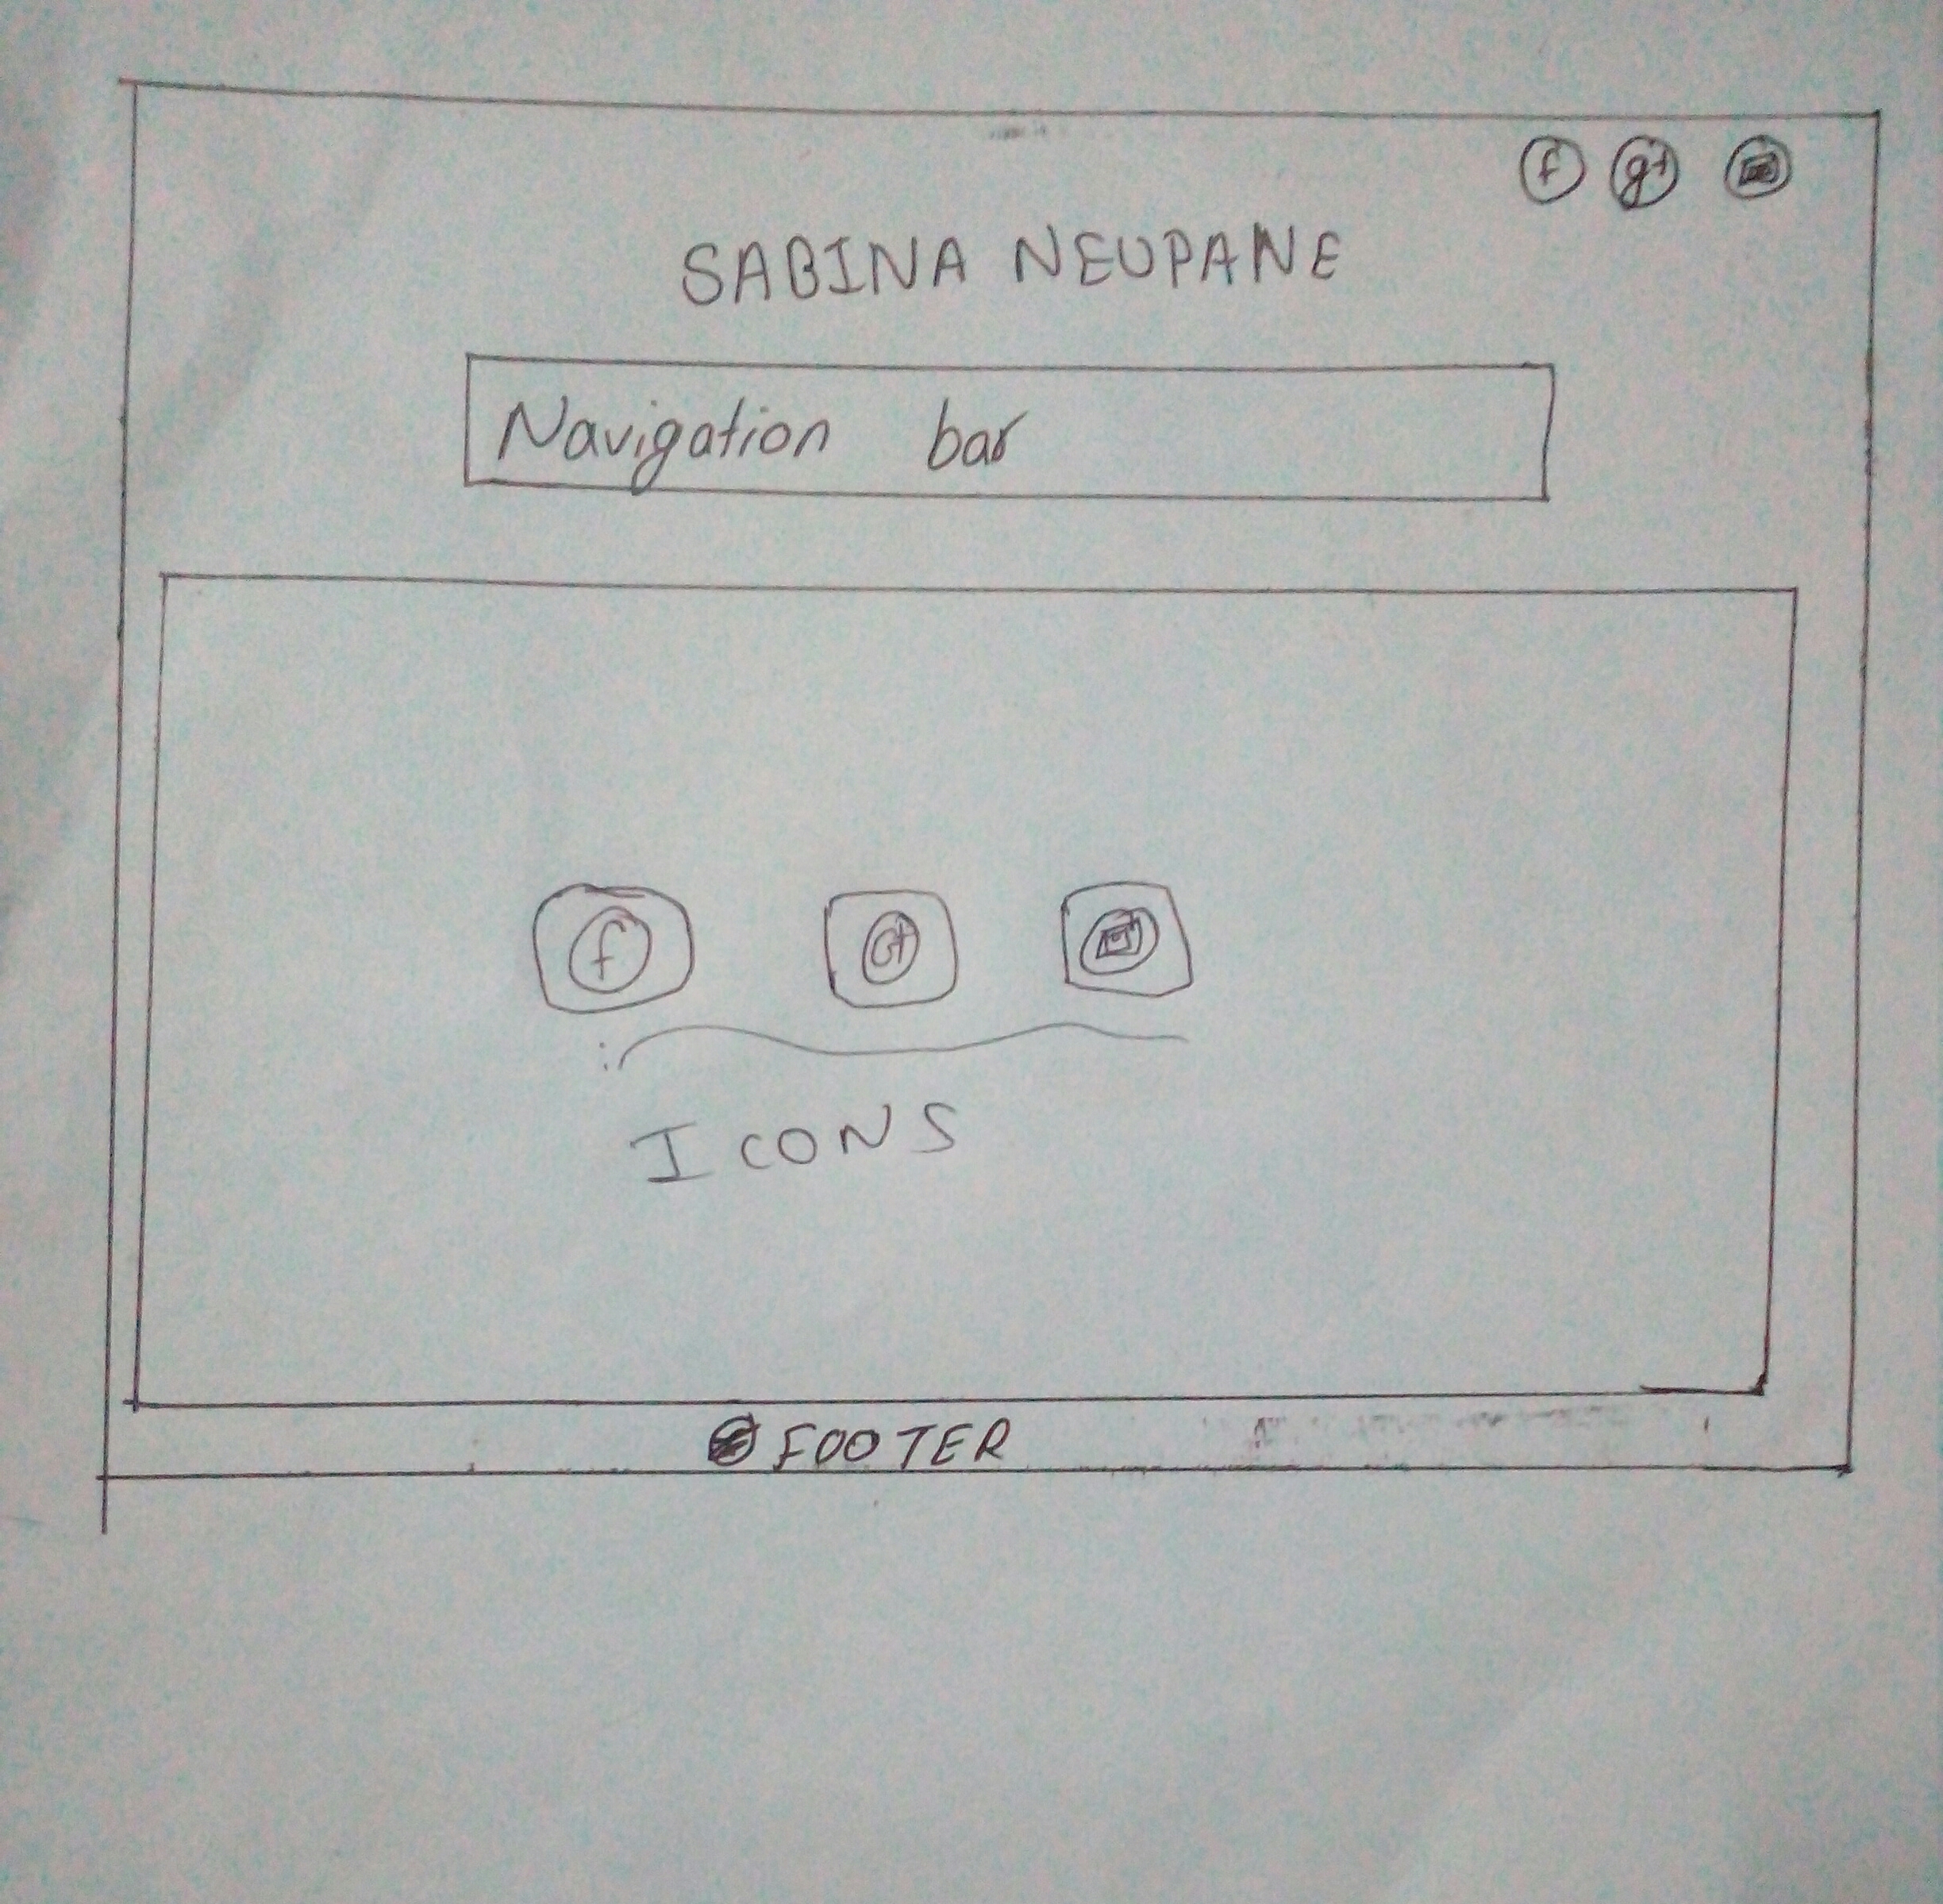 f g+
SABINA NEUPANE
Navigation bar
f G+
ICONS
FOOTER